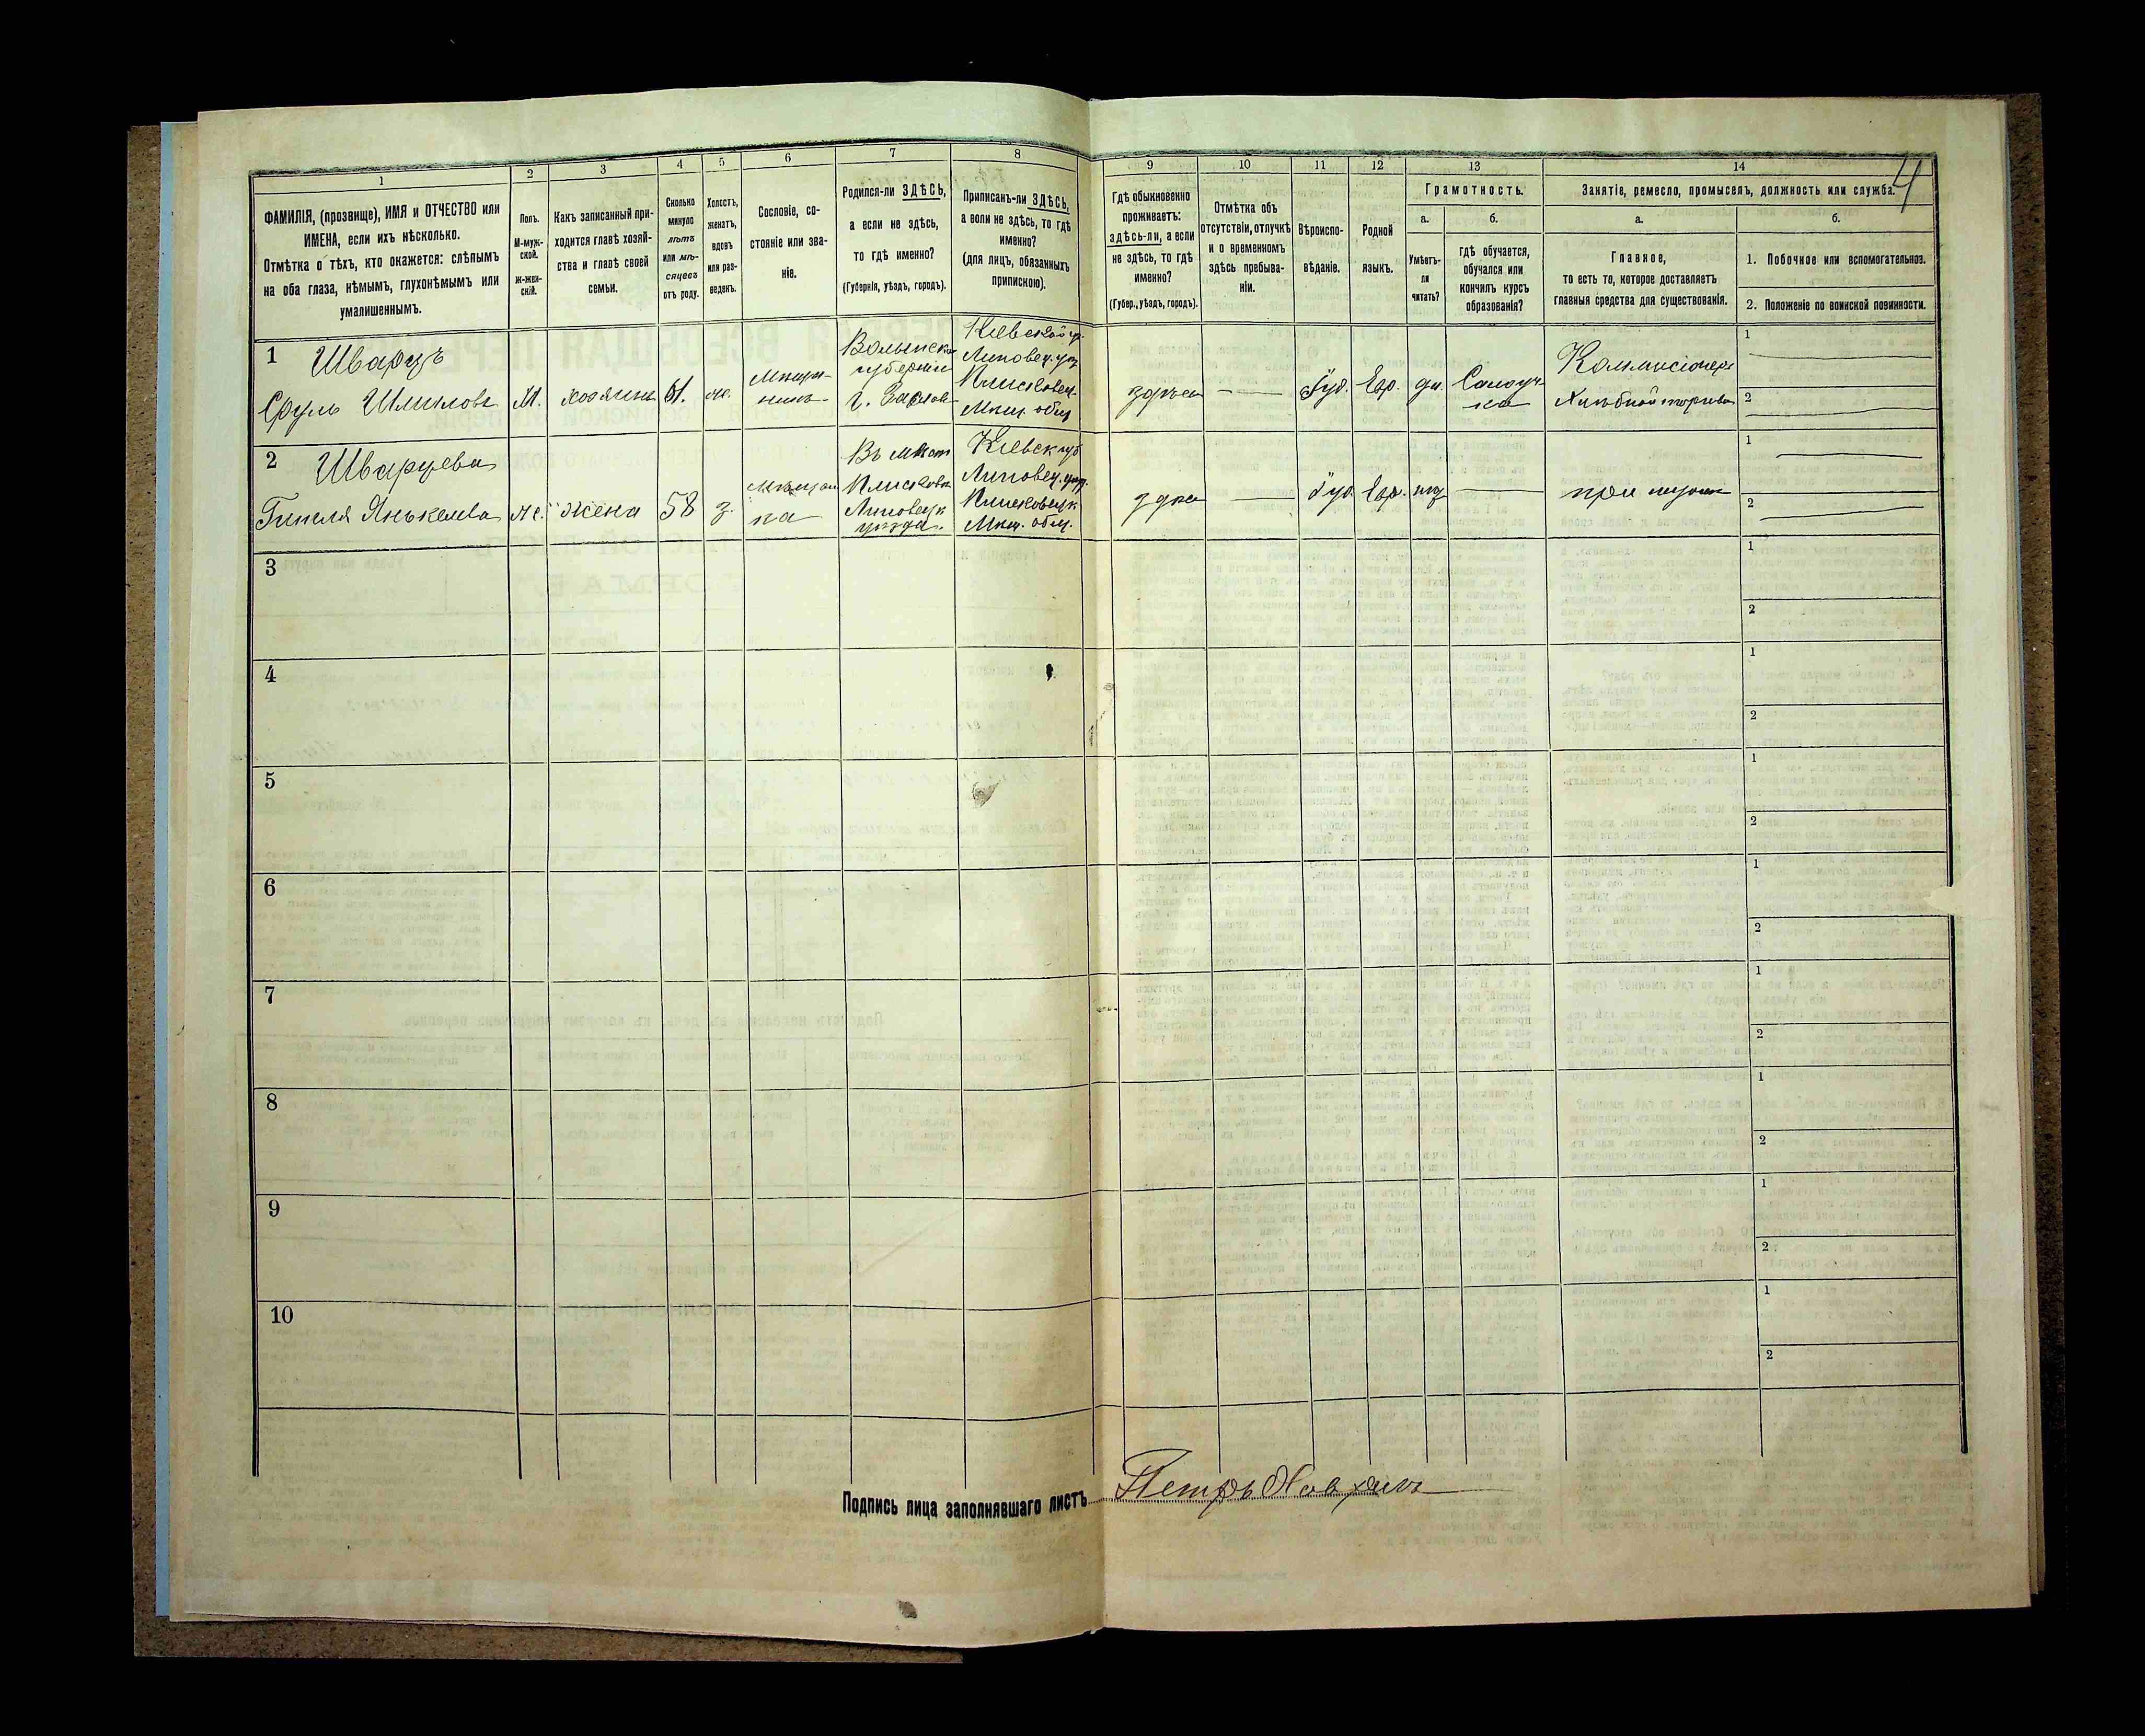 4
1
2
3
4
5
6
7
8
9
10
11
12
13
14
ФАМИЛІЯ, (прозвище), ИМЯ и ОТЧЕСТВО или
ИМЕНА, если ихъ нѣсколько.
Отмѣтка о тѣхъ, кто окажется: слѣпымъ
на оба глаза, нѣмымъ, глухонѣмымъ или
умалишеннымъ.
Полъ.
М-муж-
ской.
ж-жен-
скій.
Какъ записанный при-
ходится главѣ хозяй-
ства и главѣ своей
семьи.
Сколько
минуло
лѣтъ
или мѣ-
сяцевъ
отъ роду.
Холостъ,
женатъ,
вдовъ
или раз-
веденъ.
Сословіе, со-
стояніе или зва-
ніе.
Родился-ли ЗДѢСЬ,
а если не здѣсь,
то гдѣ именно?
(Губернія, уѣздъ, городъ).
Приписанъ-ли ЗДѢСЬ,
а если не здѣсь, то гдѣ
именно?
(для лицъ, обязанныхъ
припискою).
Гдѣ обыкновенно
проживаетъ:
здѣсь-ли, а если
не здѣсь, то гдѣ
именно?
(Губер., уѣздъ, городъ).
Отмѣтка объ
отсутствіи, отлучкѣ
и о временномъ
здѣсь пребыва-
ніи.
Вѣроиспо-
вѣданіе.
Родной
языкъ.
Грамотность.
а.
Умѣетъ-
ли
читать?
б.
гдѣ обучается,
обучался или
кончилъ курсъ
образованія?
Занятіе, ремесло, промыселъ, должность или служба.
а.
Главное,
то есть то, которое доставляетъ
главныя средства для существованія.
б.
1. Побочное или вспомогательное.
2. Положеніе по воинской повинности.
1
Шварцъ
Сруль Шмилова
М.
хозяинъ
61.
ж.
Мѣщан-
инъ
Волынск
губерніи
г. Заслав
Кіевской г.
Липовец. уѣз
Плисковец.
Мѣщ. общ
здѣсь
Іуд.
Евр.
да.
Самоуч-
ка
Коммисіонеръ
Хлѣбной торговл
1
2
2
Шварцева
Янькелева
ж.
жена
58
з.
Мѣщан
ка
Въ мѣст
Плисковѣ
Липовецк
уѣзда.
Кіевск губ
Липовец. уѣз.
Плисковецк
Мѣщ. общ.
здѣсь
Іуд.
Евр.
при мужѣ
1
2
3
1
2
4
1
2
5
1
2
6
1
2
7
1
2
8
1
2
9
1
2
10
1
2
Подпись лица заполнявшаго листъ
Петръ